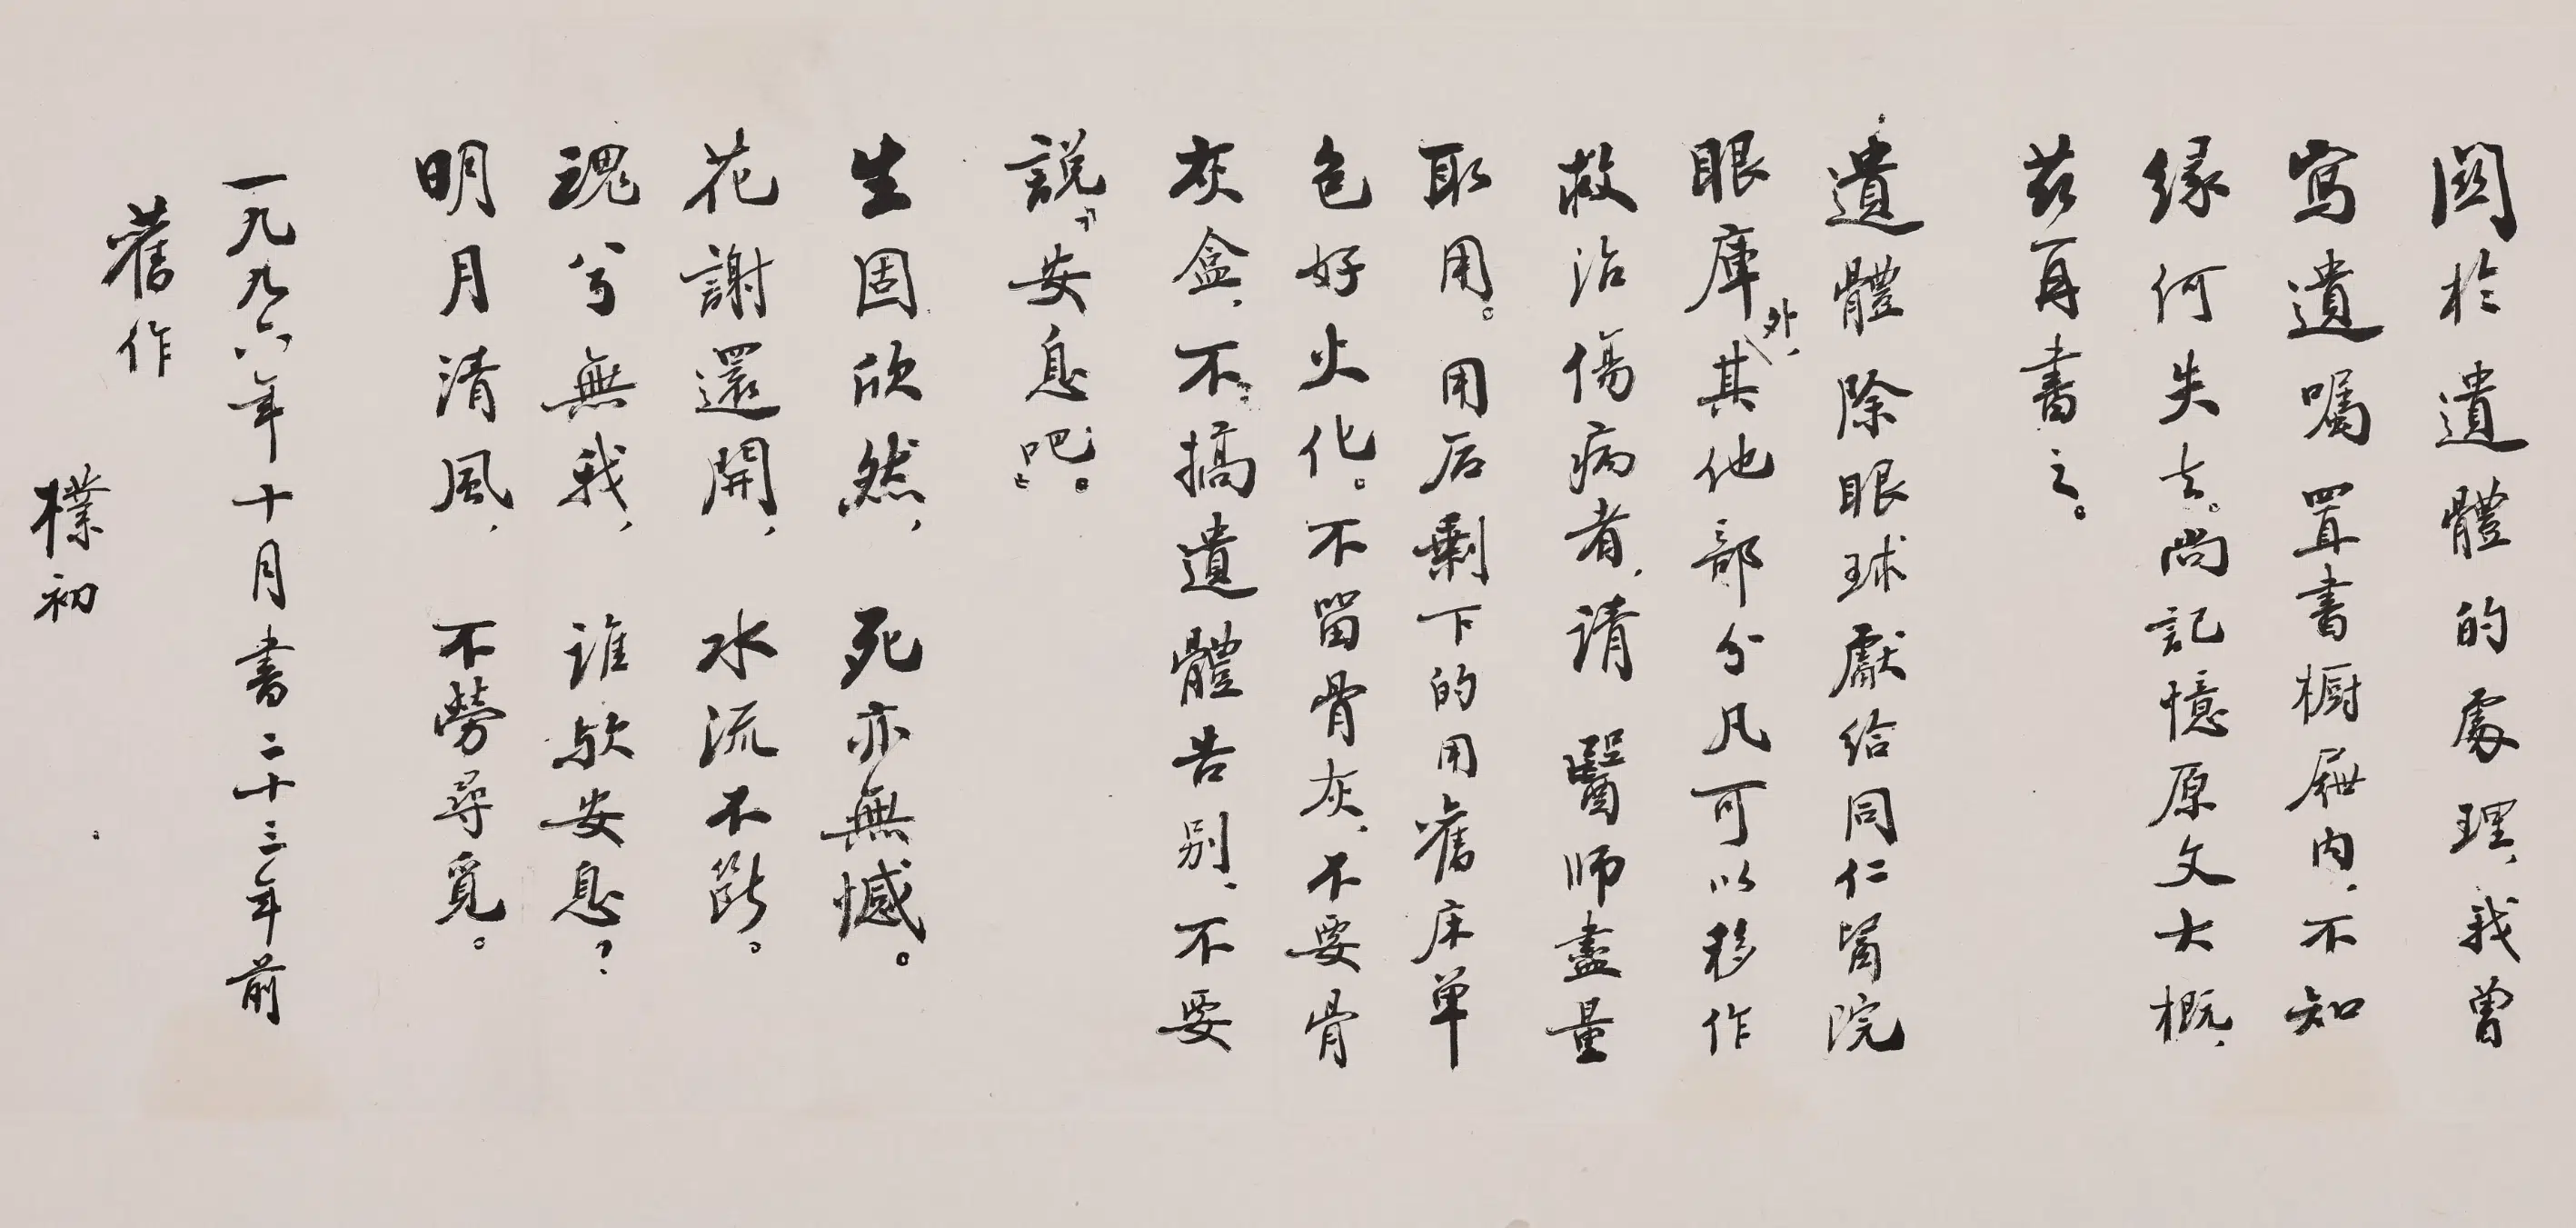 関於遺體的處理，我曾
寫遺囑置書橱屜内，不知
緣何失去。尚記憶原文大概，
兹再書之。
遺體除眼球獻給同仁醫院
眼庫外，其他部分凡可以移作
救治傷病者，请醫師盡量
取用。用后剩下的用舊床单
包好火化。不留骨灰，不要骨
灰盒，不搞遺體告别，不要
説“安息吧”。
生固欣然，死亦無憾。
花謝還開，水流不斷。
魂兮無我，誰歟安息？
明月清風，不勞尋覓。
一九九六年十月書二十三年前
舊作
樸初